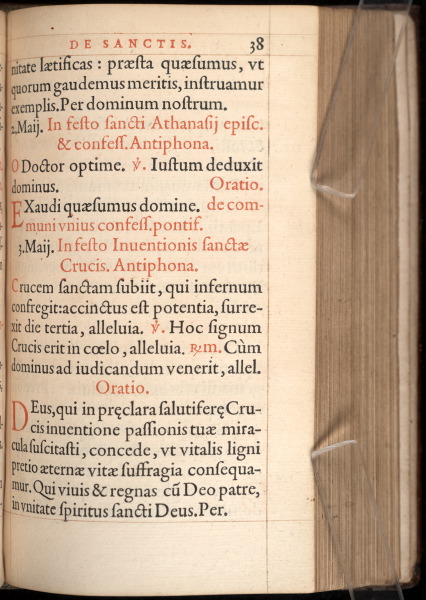 DE SANCTIS. 38
nitate lætificas : præsta quæsumus, vt
quorum gaudemus meritis, instruamur
exemplis. Per dominum nostrum.
2. Maij. In festo sancti Athanasij episc.
& confess. Antiphona.
O Doctor optime. ℣. Iustum deduxit
dominus. Oratio.
EXaudi quæsumus domine. de com-
muni vnius confess. pontif.
3. Maij. In festo Inuentionis sanctæ
Crucis. Antiphona.
Crucem sanctam subiit, qui infernum
confregit: accinctus est potentia, surre-
xit die tertia, alleluia. ℣. Hoc signum
Crucis erit in cœlo, alleluia. ℟m. Cùm
dominus ad iudicandum venerit, allel.
Oratio.
DEus, qui in pręclara salutiferę Cru-
cis inuentione passionis tuæ mira-
cula suscitasti, concede, vt vitalis ligni
pretio æternæ vitæ suffragia consequa-
mur. Qui viuis & regnas cũ Deo patre,
in vnitate spiritus sancti Deus. Per.